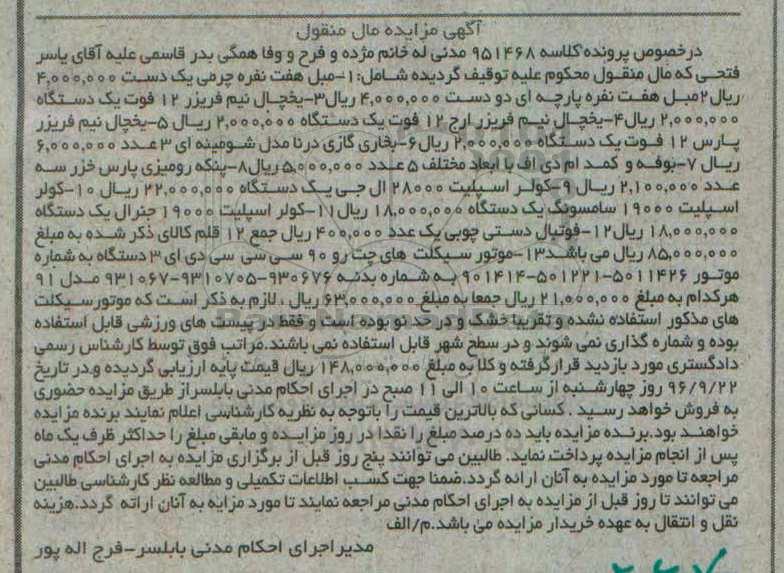 آگهی مزایده مال منقول
درخصوص پرونده کلاسه ۹۵۱۴۶۸ مدنی له خانم مژده و فرح و وفا همگی بدر قاسمی علیه آقای یاسر
فتحی که مال منقول محکوم علیه توقیف گردیده شامل: ۱-مبل هفت نفره چرمی یک دست ۴,۰۰۰,۰۰۰
ریال۲مبل هفت نفره پارچه ای دو دست ۴,۰۰۰,۰۰۰ ریال۳-یخچال نیم فریزر ۱۲ فوت یک دستگاه
۲,۰۰۰,۰۰۰ ریال۴-یخچال نیم فریزر ارج ۱۲ فوت یک دستگاه ۲,۰۰۰,۰۰۰ ریال ۵-یخچال نیم فریزر
پارس ۱۲ فوت یک دستگاه ۲,۰۰۰,۰۰۰ ریال۶-بخاری گازی درنا مدل شومینه ای ۳ عدد ۶,۰۰۰,۰۰۰
ریال ۷-بوفه و کمد ام دی اف با ابعاد مختلف ۵ عدد ۵,۰۰۰,۰۰۰ ریال۸-پنکه رومیزی پارس خزر سه
عدد ۲,۱۰۰,۰۰۰ ریال ۹-کولر اسپلیت ۲۸۰۰۰ ال جی یک دستگاه ۲۲,۰۰۰,۰۰۰ ریال ۱۰-کولر
اسپلیت ۱۹۰۰۰ سامسونگ یک دستگاه ۱۸,۰۰۰,۰۰۰ ریال۱۱-کولر اسپلیت ۱۹۰۰۰ جنرال یک دستگاه
۱۸,۰۰۰,۰۰۰ ریال۱۲-فوتبال دستی چوبی یک عدد ۴۰۰,۰۰۰ ریال جمع ۱۲ قلم کالای ذکر شده به مبلغ
۸۵,۰۰۰,۰۰۰ ریال می باشد۱۳-موتور سیکلت های جت رو ۹۰ سی سی سی دی ای ۳ دستگاه به شماره
موتور ۵۰۱۱۴۲۶-۵۰۱۲۲۱-۹۰۱۴۱۴ به شماره بدنه ۹۳۰۶۷۶-۹۳۱۰۷۰۵-۹۳۱۰۶۷ مدل ۹۱
هرکدام به مبلغ ۲۱,۰۰۰,۰۰۰ ریال جمعا به مبلغ ۶۳,۰۰۰,۰۰۰ ریال ، لازم به ذکر است که موتور سیکلت
های مذکور استفاده نشده و تقریبا خشک و در حد نو بوده است و فقط در پیست های ورزشی قابل استفاده
بوده و شماره گذاری نمی شوند و در سطح شهر قابل استفاده نمی باشند.مراتب فوق توسط کارشناس رسمی
دادگستری مورد بازدید قرار گرفته و کلا به مبلغ ۱۴۸,۰۰۰,۰۰۰ ریال قیمت پایه ارزیابی گردیده و در تاریخ
۹۶/۹/۲۲ روز چهارشنبه از ساعت ۱۰ الی ۱۱ صبح در اجرای احکام مدنی بابلسر از طریق مزایده حضوری
به فروش خواهد رسید . کسانی که بالاترین قیمت را باتوجه به نظریه کارشناسی اعلام نمایند برنده مزایده
خواهند بود.برنده مزایده باید ده درصد مبلغ را نقدا در روز مزایده و مابقی مبلغ را حداکثر ظرف یک ماه
پس از انجام مزایده پرداخت نماید. طالبین می توانند پنج روز قبل از برگزاری مزایده به اجرای احکام مدنی
مراجعه تا مورد مزایده به آنان ارائه گردد.ضمنا جهت کسب اطلاعات تکمیلی و مطالعه نظر کارشناسی طالبین
می توانند تا روز قبل از مزایده به اجرای احکام مدنی مراجعه نمایند تا مورد مزایه به آنان ارائه گردد.هزینه
نقل و انتقال به عهده خریدار مزایده می باشد.م/الف
مدیر اجرای احکام مدنی بابلسر-فرج اله پور